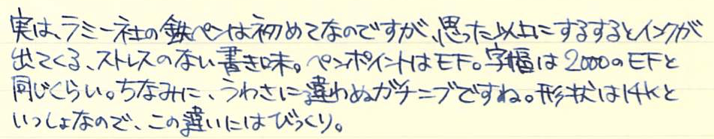 実は、ラミー社の鉄ペンは初めてなのですが、思った以上にするするとインクが
出てくる、ストレスのない書き味。ペンポイントはEF。字幅は2000のEFと
同じくらい。ちなみに、うわさに違わぬガチニブですね。形状は14Kと
いっしょなので、この違いにはびっくり。